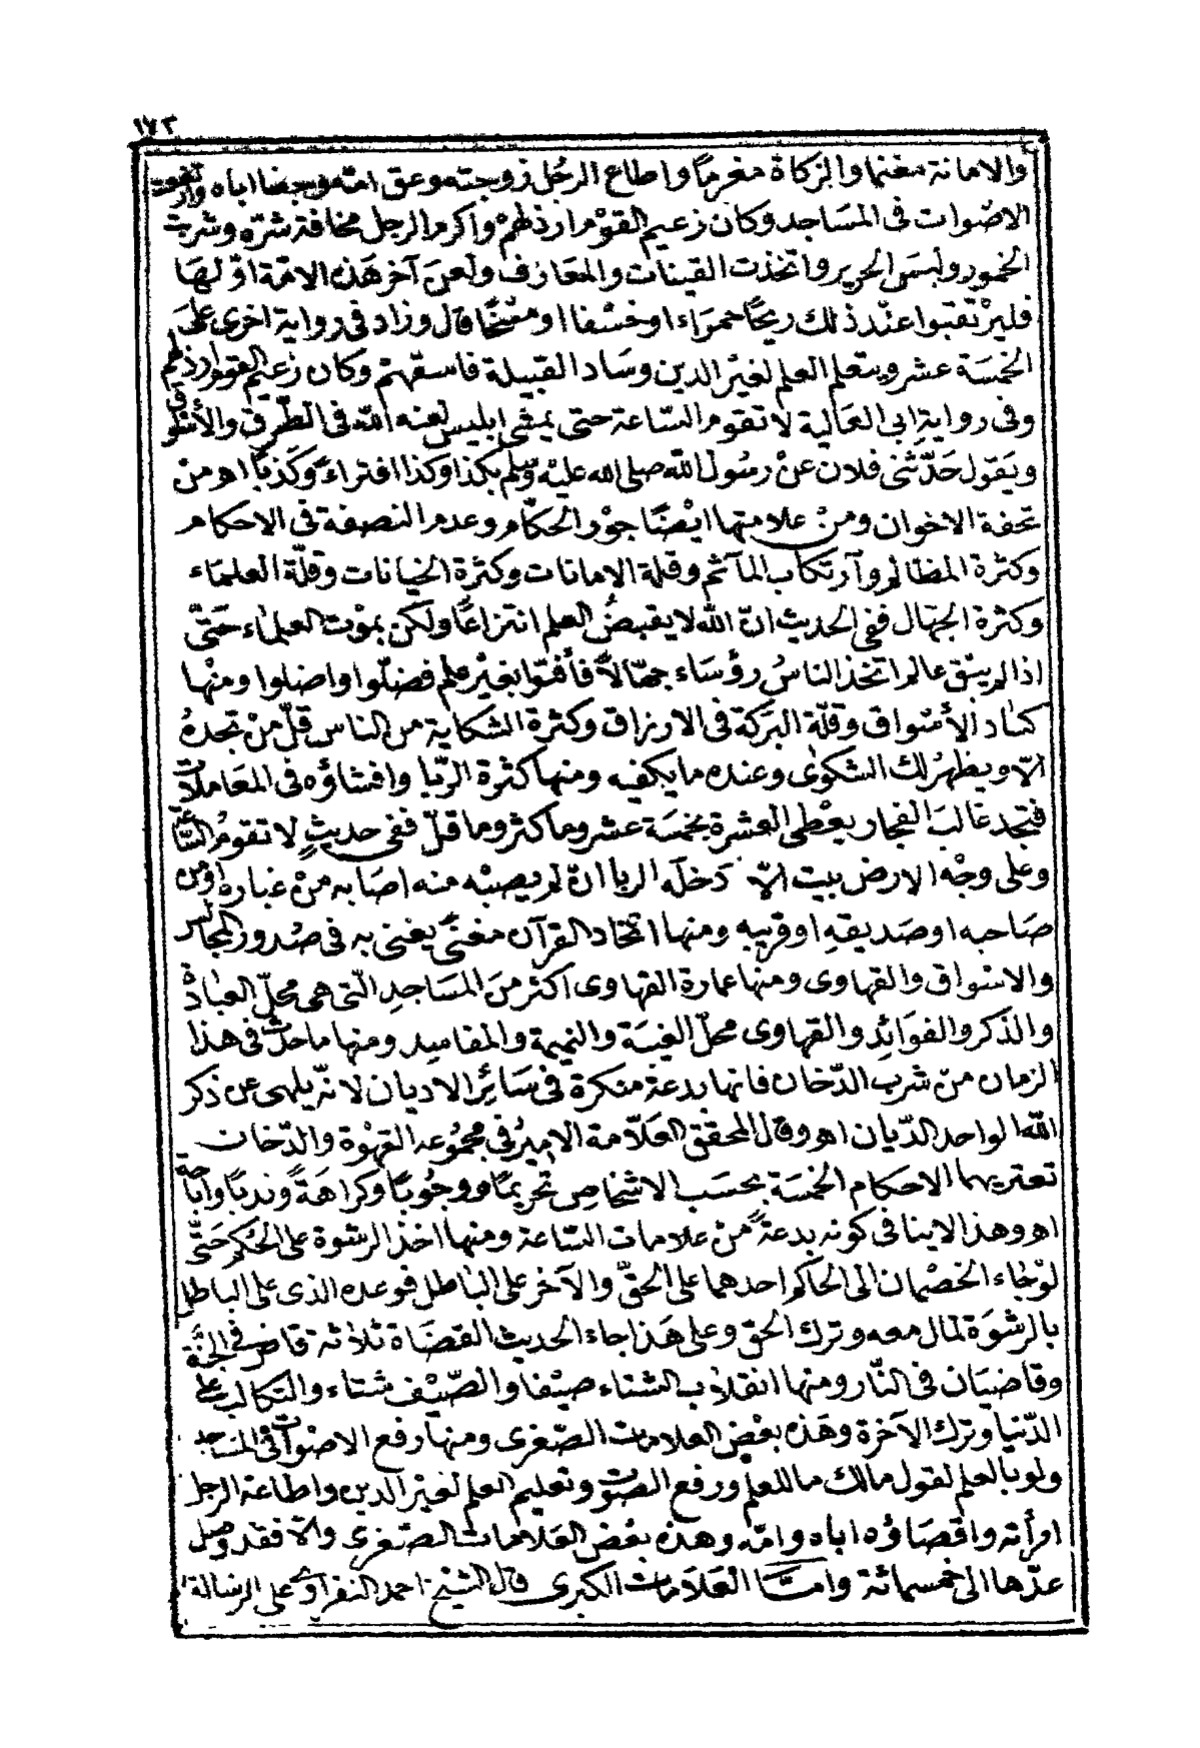 ١٧٣
والامانة مغنما والزكاة مغرمًا واطاع الرجُل زوجته وعق امّه وجفا اباه وارتفعت
الاصْوات فى المسَاجد وكان زعيم القوْم ارذلهمْ واكرم الرجل مخافة شرّه وشربت
الخمور ولبسَ الحرير واتخذت القينات والمعَازف ولعَن آخر هَذه الامّة اوّلهَا
فليرْتقبوا عنْد ذلك ريحًا حمرَاء او خسْفا او مسْخًا قال وزاد فى رواية اخرى على
الخمسَة عشر ويتعلم العلم لغيْر الدين وسَاد القبيلة فاسقهمْ وكان زعيم القوم ارذلهم
وفى روايةِ ابى العَالية لا تقوم السّاعة حتى يمشى ابليس لعنه الله فى الطّرق والأسْواق
ويَقول حَدّثنى فلان عنْ رسُول اللّه صلى الله عليْه وسّلم بكذا وكذا افتراءً وكَذبًا اهـ منْ
تحفة الاخوان ومنْ علامتها ايْضًا جوْر الحكّام وعدم النصفة فى الاحكام
وكثرة المظالم وآرتكاب المآثم وقلة الامانات وكثرة الخيانات وقلّة العلمَاء
وكثرة الجهّال ففى الحديث انّ اللّه لا يقبضُ العلم انتزاعًا ولكن بموْت العلمَاء حَتّى
اذا لم يبْق عالم اتخذ الناسُ رؤسَاء جهّالاً فأفْتوْا بغيْر علم فضلّوا واضلوا ومنْها
كسَاد الأسْواق وقلّة البرَكة فى الارزاق وكثرة الشكاية من الناس قلّ منْ تجدهُ
الّا ويظهرُ لك الشكوٰى وعنده ما يكفيه ومنها كثرة الرّبا وافشاؤه فى المعَاملات
فتجد غالبَ الفجار يعْطى العشرة بخمسَة عشر وما كثر وما قلّ ففى حديثٍ لا تقومُ السَّاعة
وعلى وجْه الارض بيت الّا دَخله الربا انْ لم يصبْه منه اصَابه منْ غباره اوْ من
صَاحبه او صَديقهِ او قريبه ومنها اتخاذ القرآن مغنىً يغنى به فى صُدور المجَالس
والاسْواق والقهاوى ومنها عمارة القهاوى اكثر منَ المسَاجدِ الّتى هى محلّ العبادة
والذكر والفوَائدِ والقهاوى محلّ الغيبَة والنميمة والمفاسِد ومنها ما حدث فى هذا
الزمان منْ شرب الدّخان فانها بدعة منكرة فى سَائِر الاديان لانّه يلهى عن ذكر
اللّه الواحد الدّيان اهـ وقال المحقق العَلّامة الامِيرُ فى مجمُوعه القهْوة والدّخان
تعتريهما الاحكام الخمسَة بحسَب الاشخاص تحريمًا ووجُوبًا وكراهَةً وندبًا واباحة
اهـ وهذا لا ينافى كونه بدعةً منْ علامات السّاعة ومنها اخذ الرشوة على الحُكم حَتَّى
لوْ جَاء الخصْمان الى الحَاكم احدهما على الحقّ والآخر على البَاطل فوعده الذى على الباطل
بالرشوَة لمال معه وترك الحق وعلى هَذا جاء الحديث القضَاة ثلاثة قاضٍ فى الجنّة
وقاضيَان فى النّار ومنها انقلاب الشتاء صيْفا والصّيْف شتاء والتكالب على
الدّنيا وترك الآخرة وهَذه بعْض العلامات الصّغرى ومنها رفع الاصْوات فى المسَاجد
ولو بالعلم لقول مالك ما للعلم ورفع الصوت وتعليم العلم لغيْر الدين واطاعة الرجل
امرأته واقصَاؤه اباه وامّه وهذه بعْض العَلامات الصّغرى والّا فقد وصل
عدّها الى خمسمائة وامَّا العَلاَمات الكبرى قال الشيخ احمد النفراوى على الرسالة